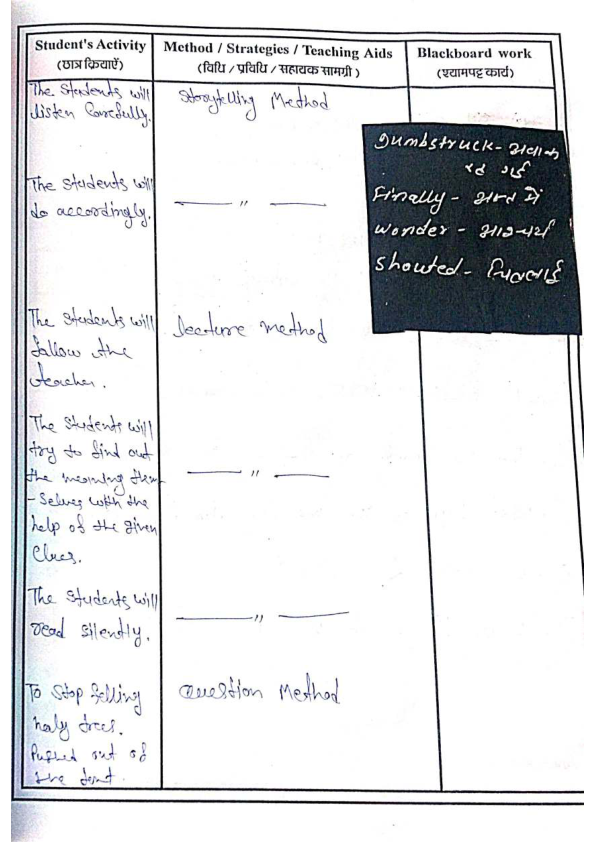 Student's Activity
(छात्र क्रियाएँ)
Method / Strategies / Teaching Aids
(विधि / प्रविधि / सहायक सामग्री )
Blackboard work
(श्यामपट्ट कार्य)
The Students will
listen Carefully.
Storytelling Method
Dumbstruck - अवाक
रह गई
Finally - अन्त में
wonder - आश्चर्य
Shouted - चिल्लाई
The Students will
do accordingly.
— " —
The Students will
follow the
teacher.
Lecture method
The Students will
try to find out
the meaning them
- Selves with the
help of the given
Clues.
— " —
The Students will
read silently.
— " —
To Stop felling
holy trees.
Pushed out of
the tent.
Question Method